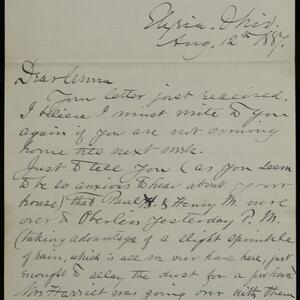 Elyria, Ohio.
Aug. 12th 1887.
Dear Anna
Your letter just received.
I believe I must write to you
again if you are not coming
home till next week.
Just to tell you (as you seem
to be so anxious to hear about your
house) that Paul H. & Henry M. were
over to Oberlin yesterday P. M.
(taking advantage of a slight sprinkle
of rain, which is all we have here, just
enough to allay the dust for a few hours.
Harriet was going over with them